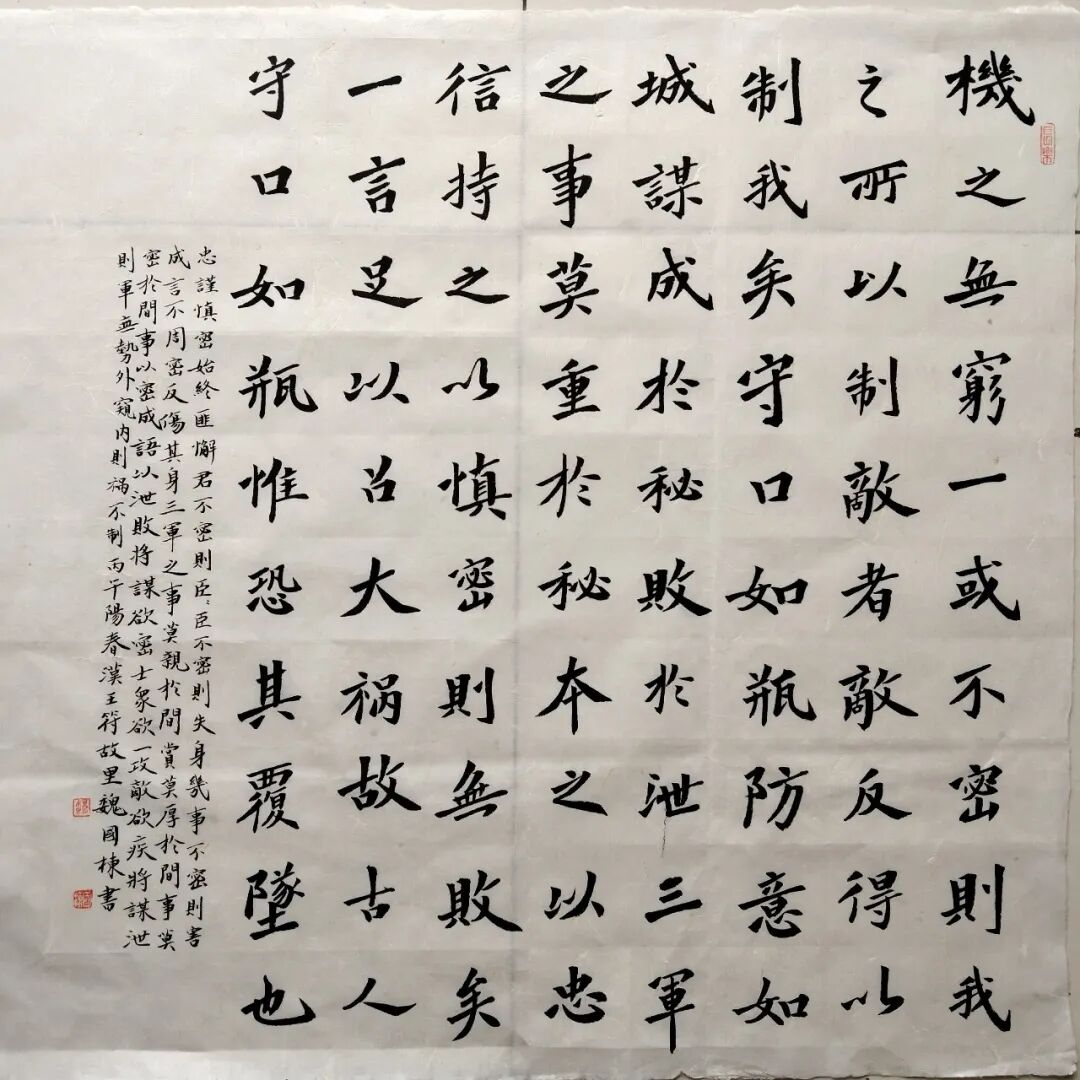 機之無窮一或不密則我
之所以制敵者敵反得以
制我矣守口如瓶防意如
城謀成於秘敗於泄三軍
之事莫重於秘本之以忠
信持之以慎密則無敗矣
一言足以召大祸故古人
守口如瓶惟恐其覆墜也
忠謹慎密始終匪懈君不密則臣〻臣不密則失身幾事不密則害
成言不周密反傷其身三軍之事莫親於間賞莫厚於間事莫
密於間事以密成語以泄敗将謀欲密士衆欲一攻敵欲疾將謀泄
則軍無勢外窺内則祸不制丙午陽春漢王符故里魏國棟書